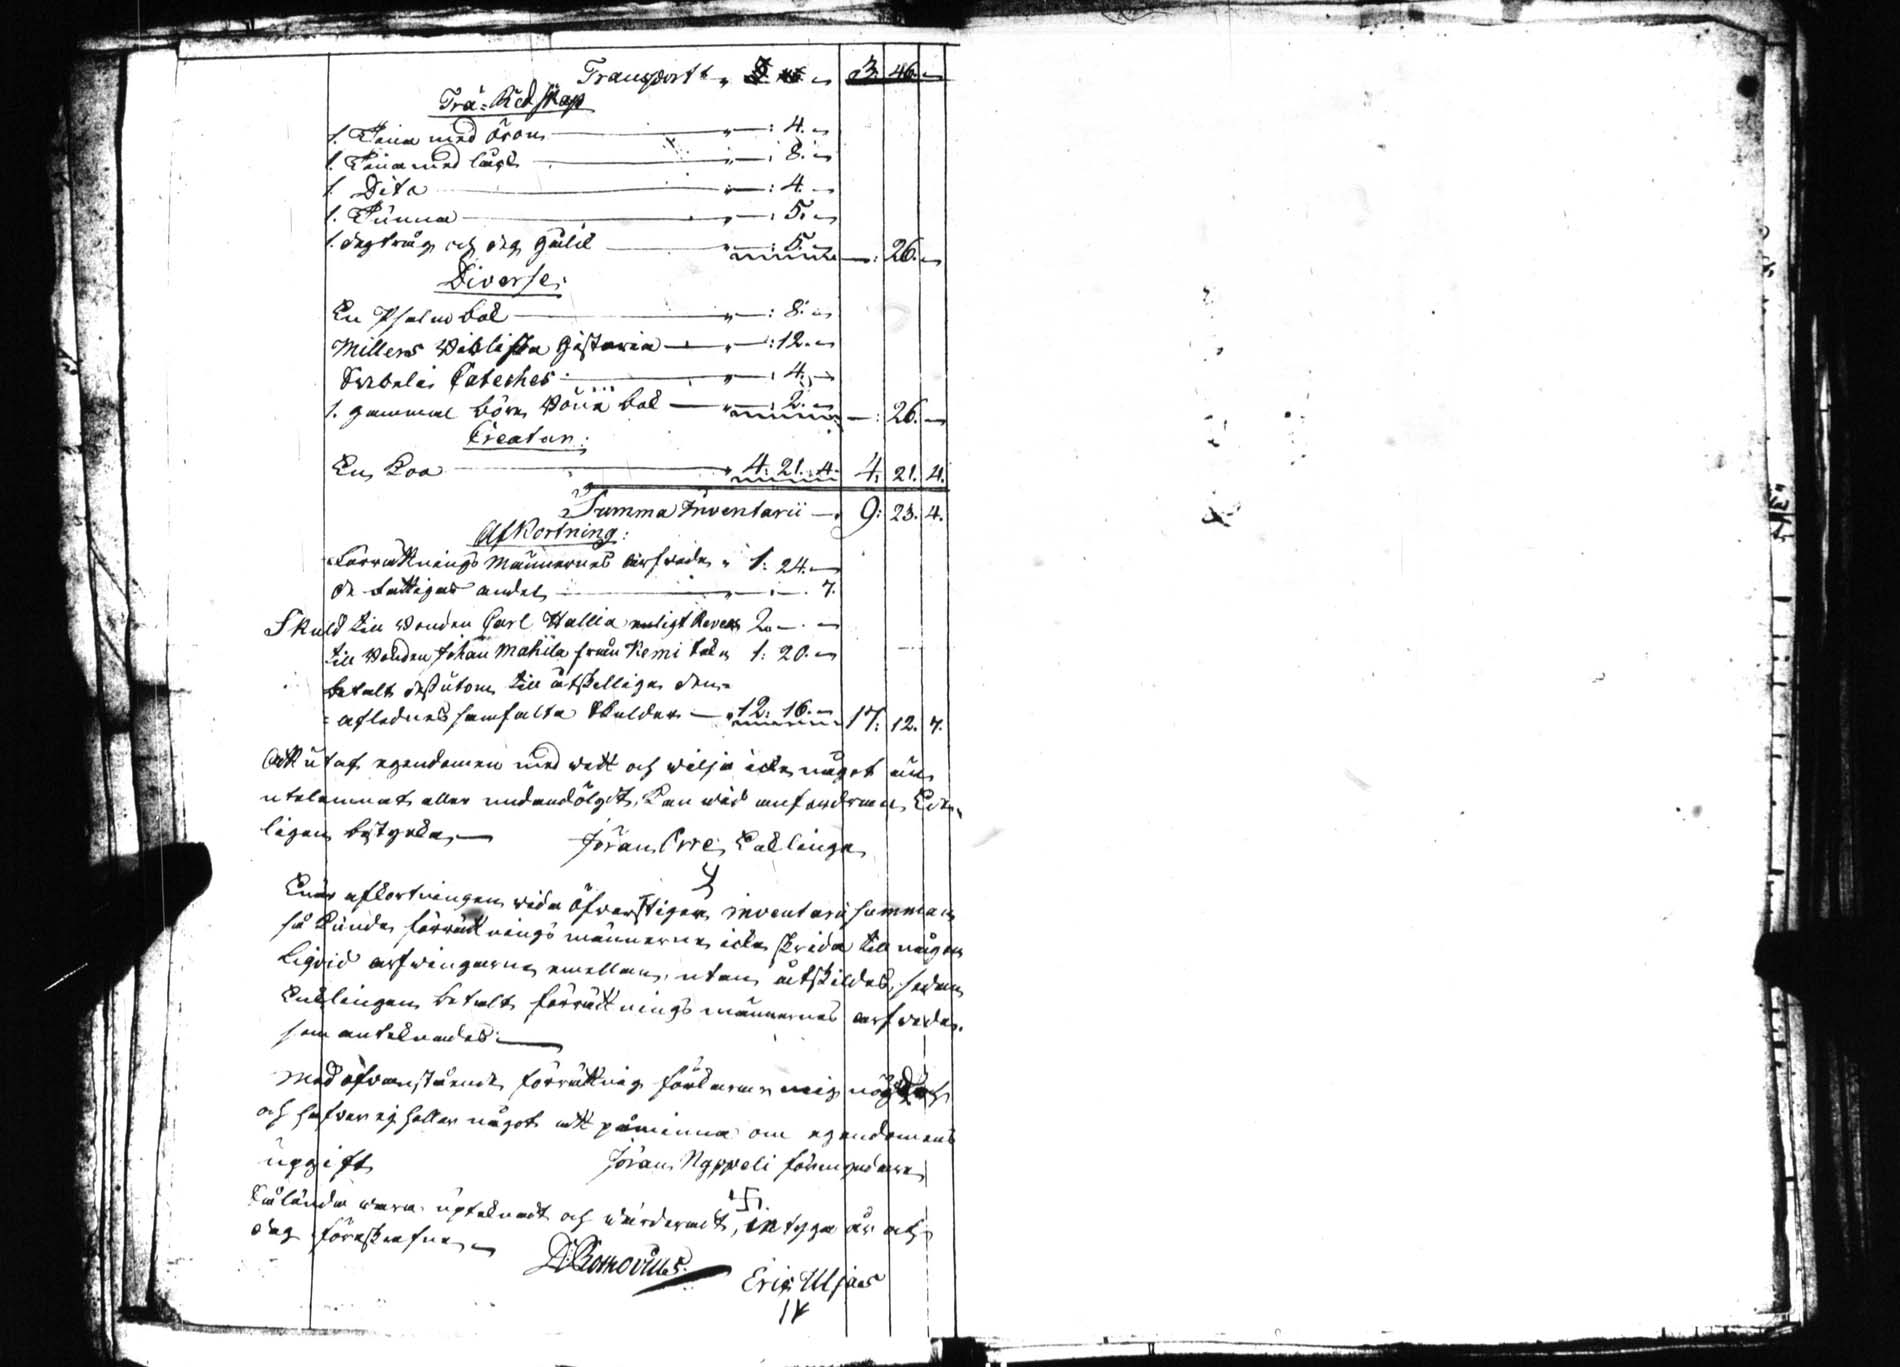 Transport 3. 46. —
Trä-Redskap
1. Tina med öron — 4. —
1. Tina med lås — 8. —
1. Dito — 4. —
1. Tunna — 5. —
1. degtråg och — 5. — 26. —
Diverse:
En Psalmbok — 8. —
Millers Bibliska Historia — 12. —
Svebelii Cateches — 4. —
1. gammal bok — 2. — 26. —
Creatur:
En Koo — 4. 21. 4. 4. 21. 4.
Summa Inventarii — 9: 23. 4.
Afkortning:
Förrättnings Männernes arfvode 1: 24. —
de fattigas andel — 7.
Skuld till Bonden Carl Wallia enligt Revers 2. — —
till Bonden Johan Makila från Kemi 1: 20. —
betalt dessutom till åtskillige den
aflednes samfälta skulder — 12: 16. — 17: 12. 7.
At utaf egendomen med vett och vilja icke något är
utelemnat eller undandölgit, kan vid anfordran Ed-
ligen betygas —
Jöran Enklinge
Enär afkortningen vida öfverstiger inventarii summan
så kunde förrättnings männerne icke skrida till någon
Liqvid arfvingarne emellan, utan åtskildes, sedan
Enklingen betalt förrättnings männernes arfvode.
som anteknades. —
Med ofvanstående förrättning förklarar mig nögd
och hafver ej heller något att påminna om egendomens
upgift
Jöran Nyppeli förmyndare
vara uptecknadt och värderadt, intyga år och
dag föreskrefne
Eric Uljas